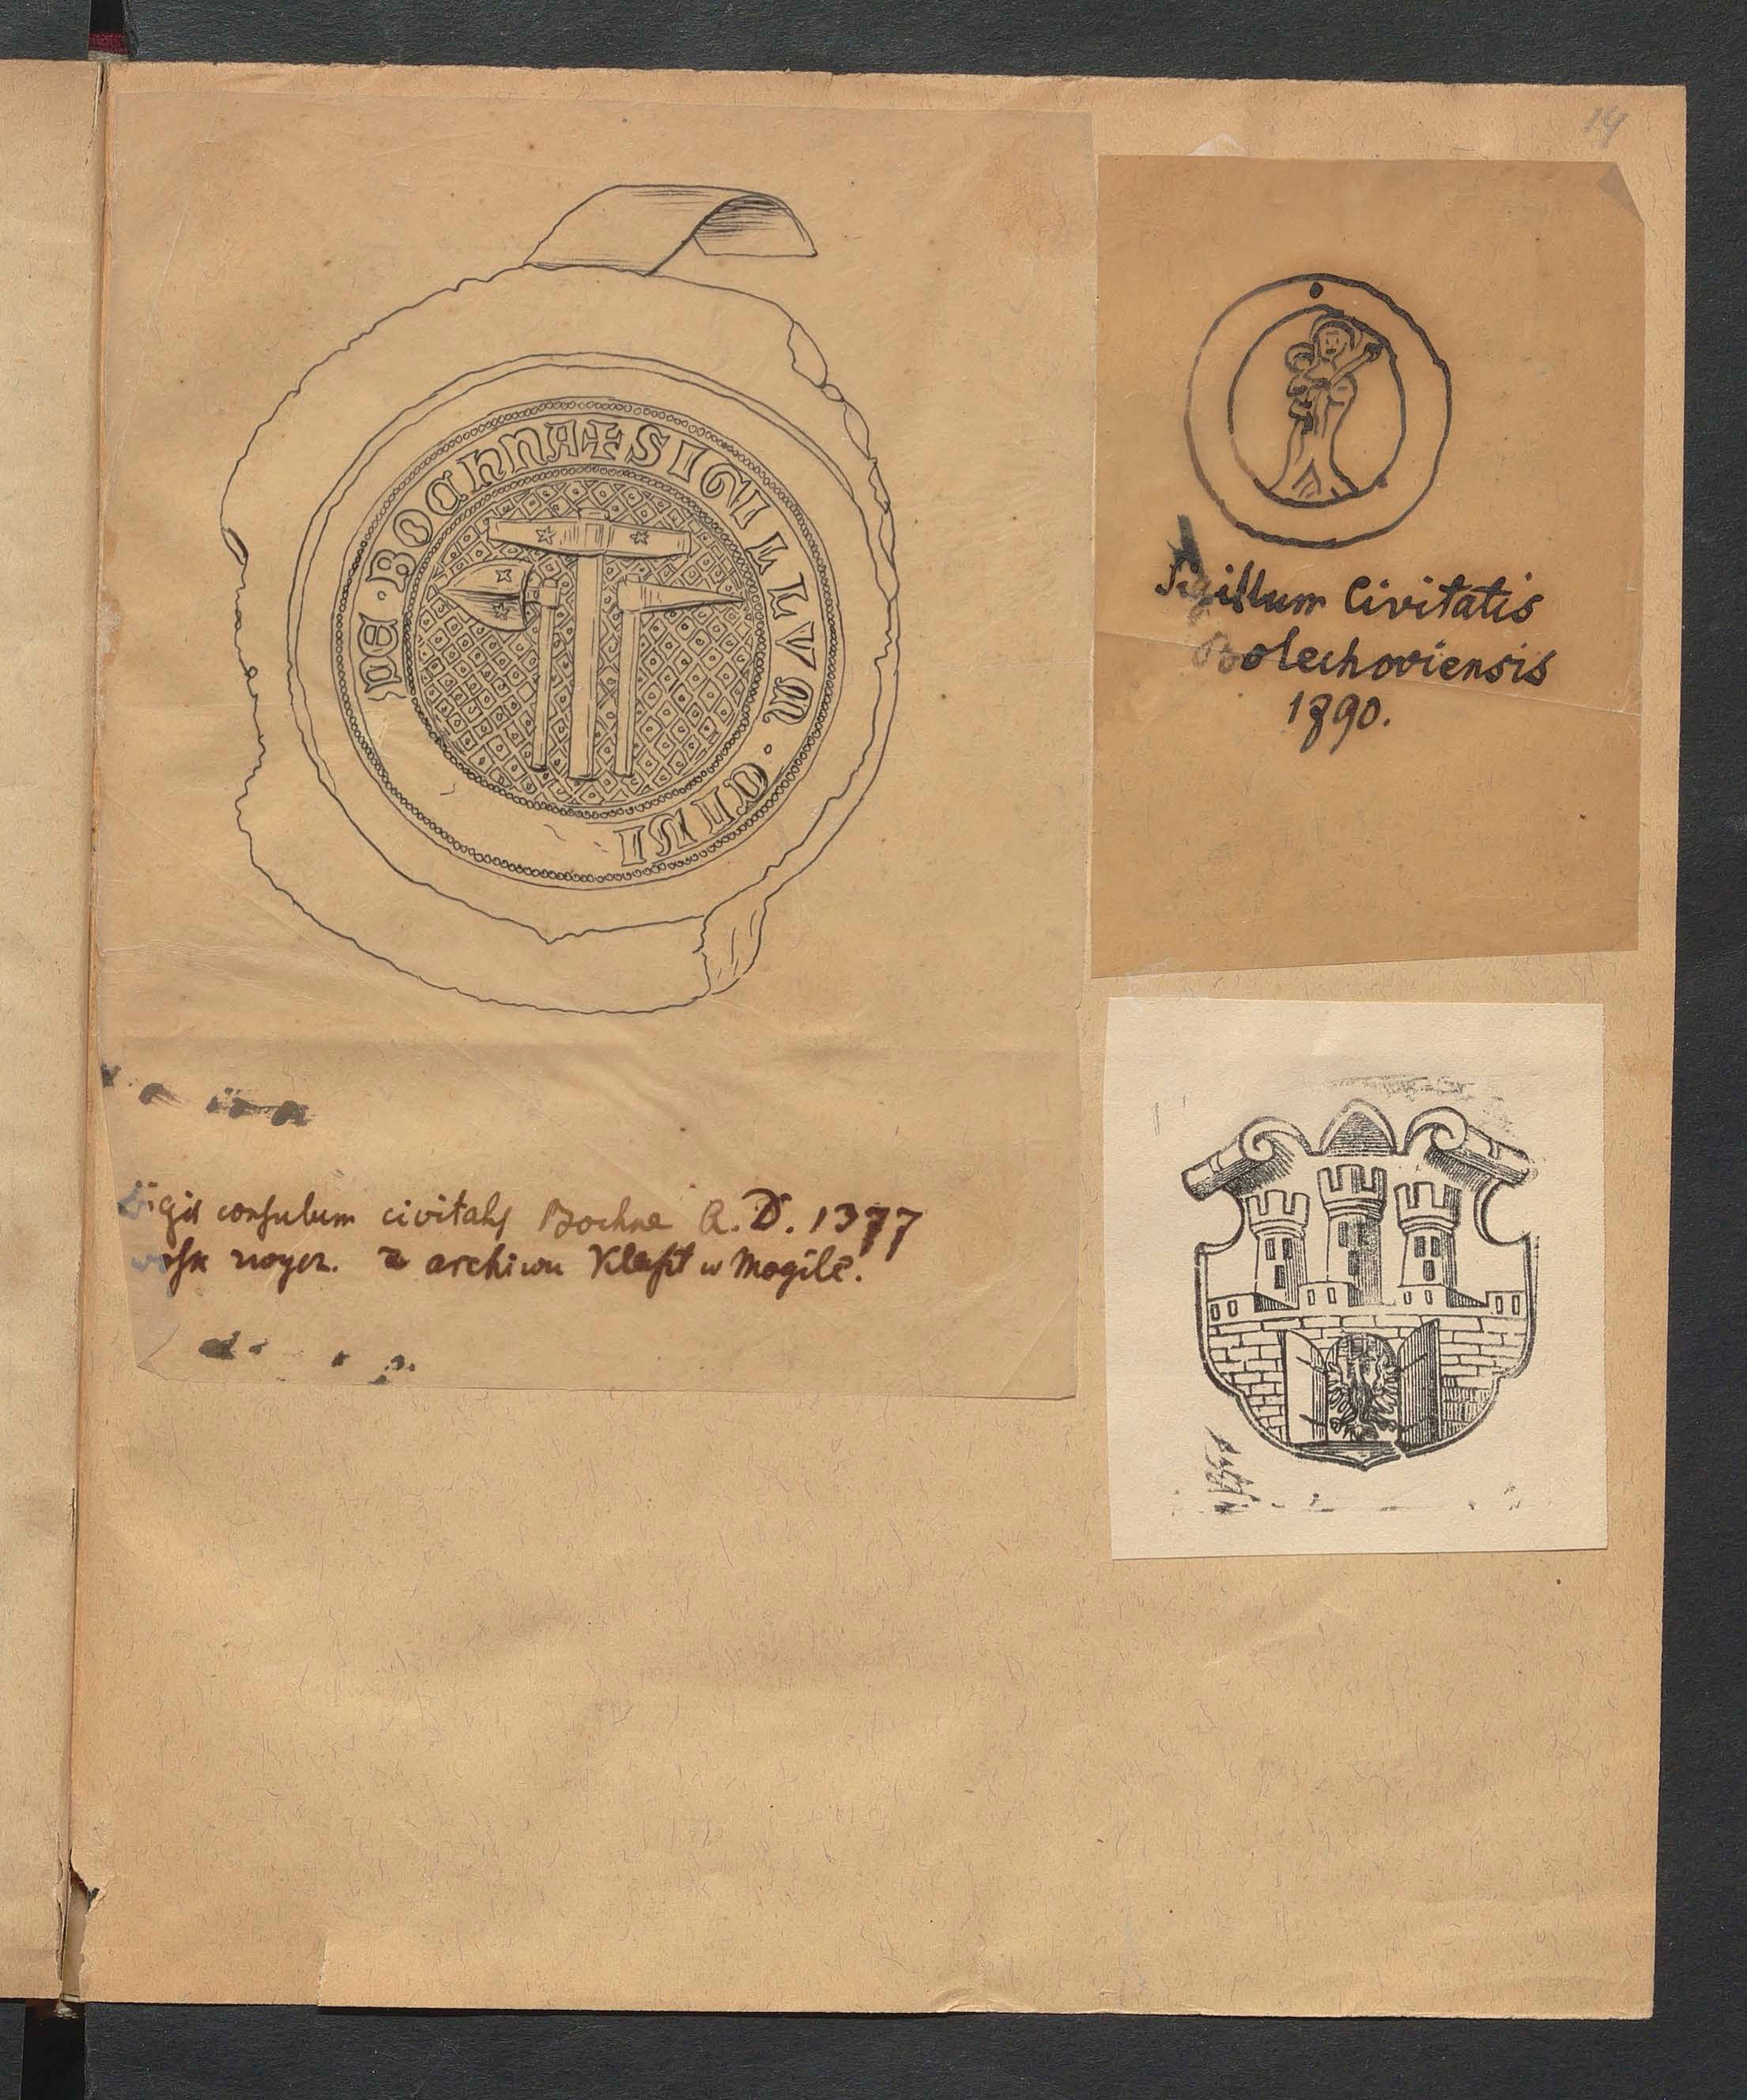 14
+ SIGILLVM · CIVI
DE · BOCHNA
Sigil consulum civitatis Bochne A. D. 1377
wosk zwycz. z archiwu Klaszt w Mogile.
Sigillum Civitatis
Bolechoviensis
1890.